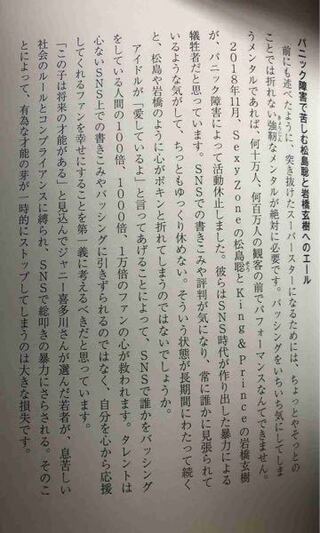 パニック障害で苦しむ松島聡と岩橋玄樹へのエール
前にも述べたように、突き抜けたスーパースターになるためには、ちょっとやそっとの
ことでは折れない強靭なメンタルが絶対に必要です。バッシングをいちいち気にしてしま
うメンタルであれば、何十万人、何百万人の観客の前でパフォーマンスなんてできません。
2018年11月、Sexy Zoneの松島聡とKing & Princeの岩橋玄樹
が、パニック障害によって活動休止しました。彼らはSNS時代が作り出した暴力による
犠牲者だと思っています。SNSでの書きこみや評判が気になり、常に誰かに見張られて
いるような気がして、ちっともゆっくり休めない。そういう状態が長期間にわたって続く
と、松島や岩橋のように心がポキンと折れてしまうのではないでしょうか。
アイドルが「愛しているよ」と言ってあげることによって、SNSで誰かをバッシング
をしている人間の100倍、1000倍、1万倍のファンの心が救われます。タレントは
心ないSNS上での書き込みやバッシングに引きずられるのではなく、自分を心から応援
してくれるファンを幸せにすることを第一義に考えるべきだと思っています。
「この子は将来の才能がある」と見込んでジャニー喜多川さんが選んだ若者が、息苦しい
社会のルールとコンプライアンスに縛られ、SNSで総叩きの暴力にさらされる。そのこ
とによって、有為な才能の芽が一時的にストップしてしまうのは大きな損失です。